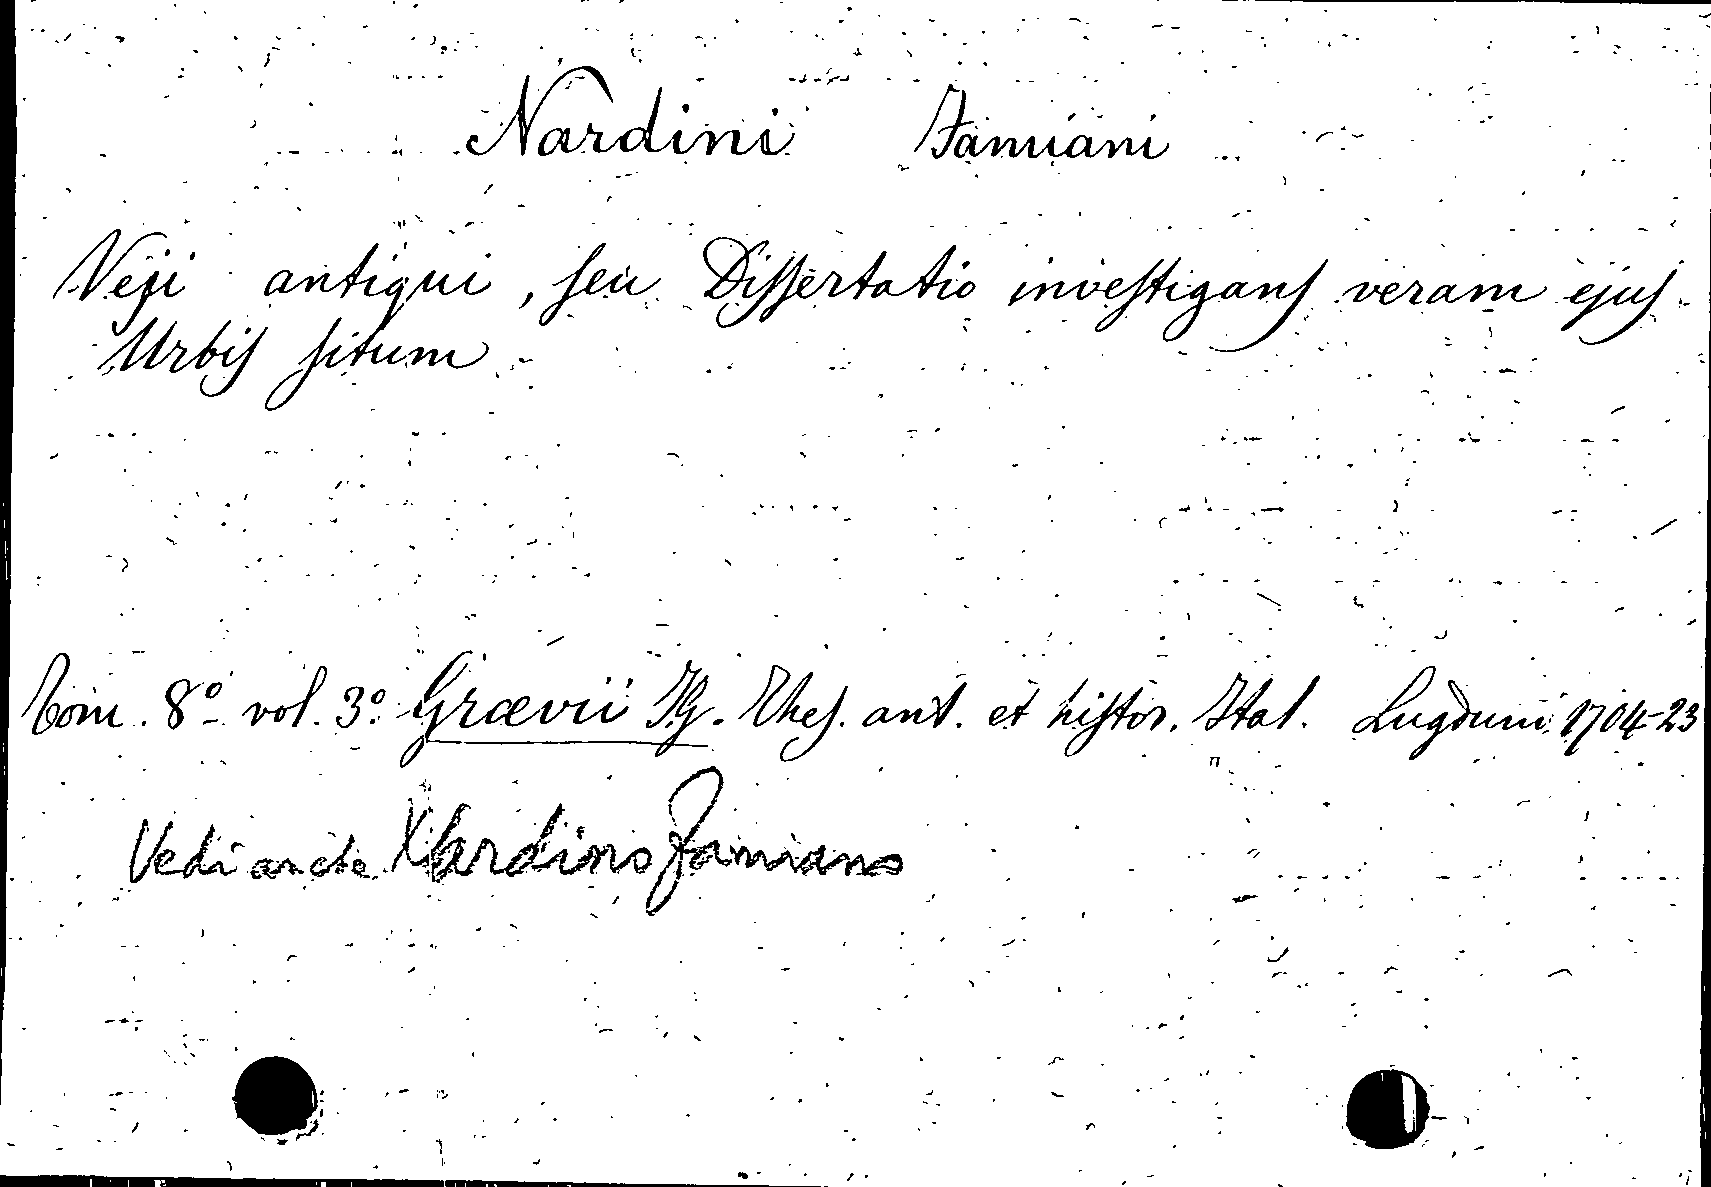 Nardini Famiani
Veji antiqui, seu Dissertatio investigans veram ejus
Urbis situm
Tom. 8º vol. 3º Grævii JG. Thes. ant. et histor. Ital. Lugduni 1704-23
Vedi anche Nardino Famiano